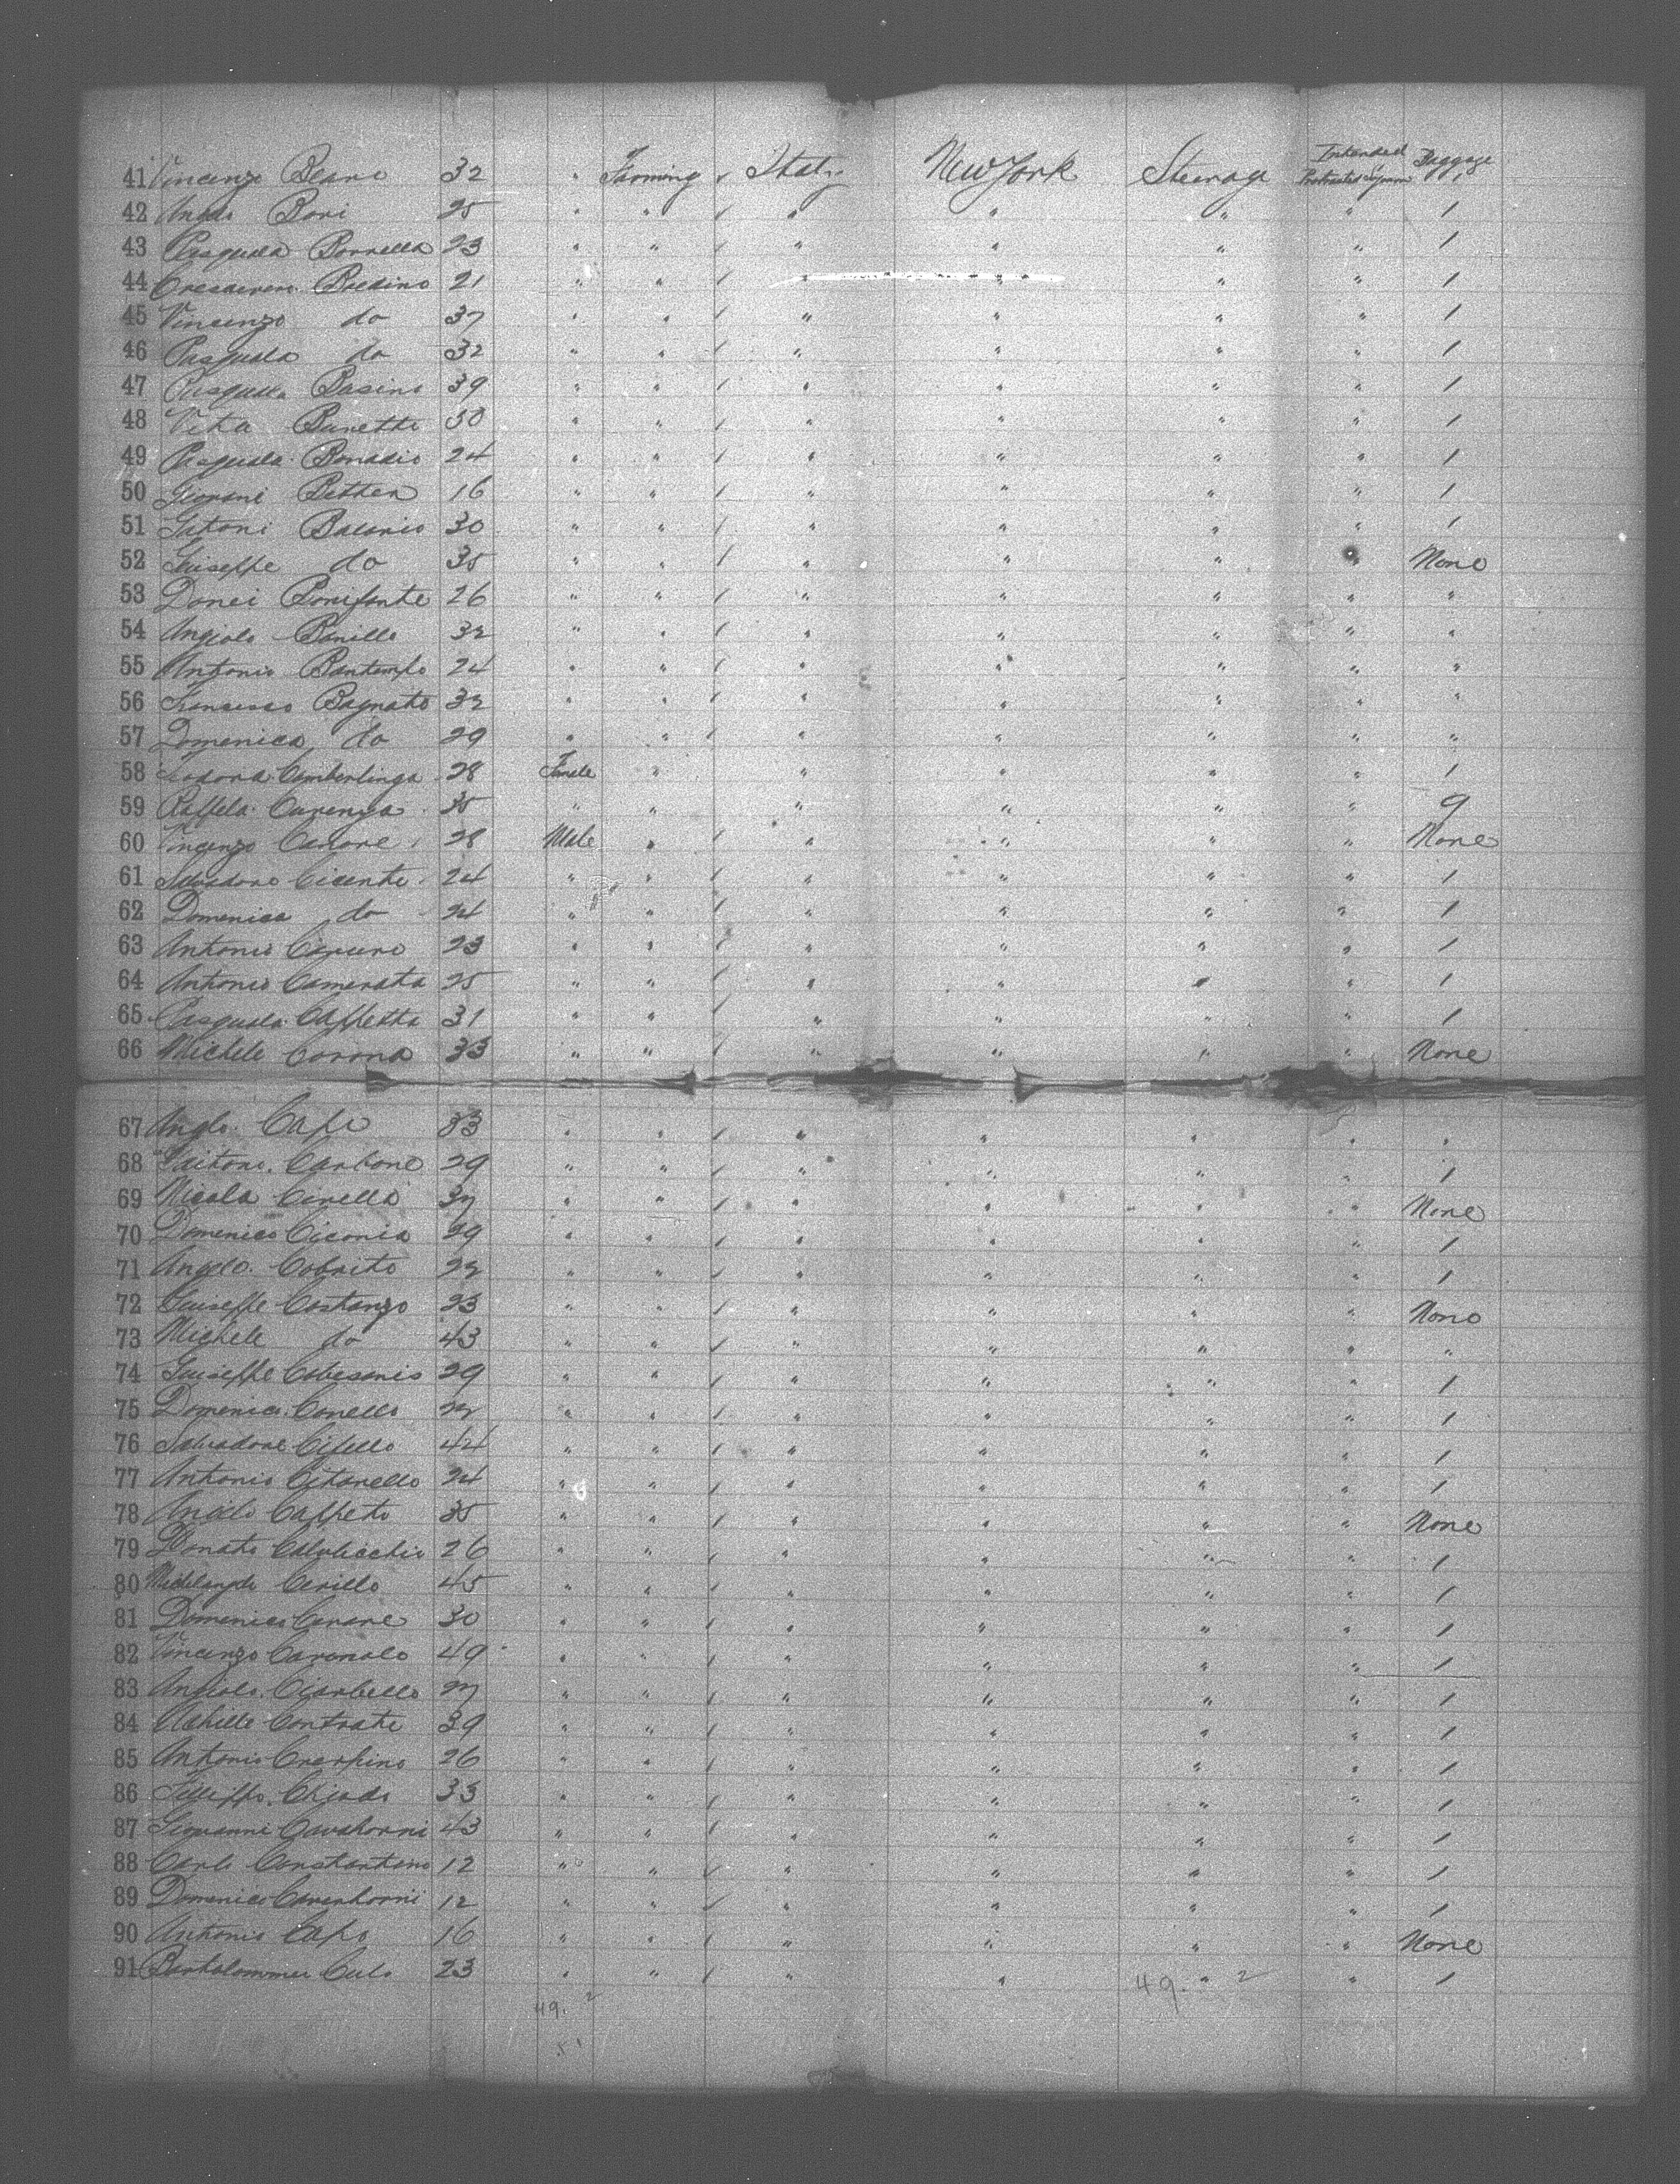 Intended Baggage
41 Vincenzo Beano 32 " Farming Italy New York Steerage Protracted Sojourn 1
42 Angelo Bovi 25 " " / " " " " 1
43 Pasquala Borrella 23 " " / " " " " 1
44 Bredino 21 " " / " " " " 1
45 Vincenzo do 37 " " / " " " " 1
46 Pasquala do 32 " " / " " " " 1
47 Pasquala Basino 39 " " / " " " " 1
48 Vita Bunetti 30 " " / " " " " 1
49 Pasquala Bonadio 24 " " / " " " " 1
50 Giovani Better 16 " " / " " " " 1
51 Gatoni Balonio 30 " " / " " " " 1
52 Guiseppe do 35 " " / " " " " None
53 Donei Bonifante 26 " " / " " " " "
54 Angiolo Banillo 32 " " / " " " " "
55 Antonio Bontempo 24 " " / " " " " "
56 Francesco Bagnato 32 " " / " " " " "
57 Domenica do 29 " " / " " " " "
58 Camberlinga 28 Female " " " " " 1
59 Raffela Curenza 35 " " " " " " 9
60 Vincenzo Canore 28 Male " / " " " " None
61 Salvadore Cicente 24 " " / " " " " 1
62 Domenica do 24 " " / " " " " 1
63 Antonio Caruso 23 " " / " " " " 1
64 Antonio Camerata 25 " " / " " " " 1
65 Pasquala Caffetta 31 " " / " " " " 1
66 Michele Corona 33 " " / " " " " None
67 Anglo Capo 33 " " / " " " " "
68 Gaitono Carbone 29 " " / " " " " 1
69 Nicola Cirella 37 " " / " " " " None
70 Domenico Ciconia 29 " " / " " " " 1
71 Angelo Cobrito 22 " " / " " " " 1
72 Guiseppe Costanzo 23 " " / " " " " None
73 Michele do 43 " " / " " " " "
74 Guiseppe Cobesonis 29 " " / " " " " 1
75 Domenico Conello 22 " " / " " " " 1
76 Salvadore Cifello 44 " " / " " " " 1
77 Antonio Citanello 24 " " / " " " " 1
78 Angelo Calpeto 35 " " / " " " " None
79 Donato Calvlicchio 26 " " / " " " " 1
80 Michelangelo Cirillo 45 " " / " " " " 1
81 Domenico Canane 30 " " / " " " " 1
82 Vincenzo Caronalo 49 " " / " " " " 1
83 Angiolo Ciarbello 27 " " / " " " " 1
84 Achille Contrate 39 " " / " " " " 1
85 Antonio Crespino 26 " " / " " " " 1
86 Filippo Chiado 33 " " / " " " " 1
87 Giovanni Cavahorni 43 " " / " " " " 1
88 Carlo Constantino 12 " " / " " " " 1
89 Domenico Cavahorni 12 " " / " " " " 1
90 Antonio Capo 16 " " / " " " " None
91 Bartholommeo Culo 23 " " / " " " " 1
49. 2 49. 2
51